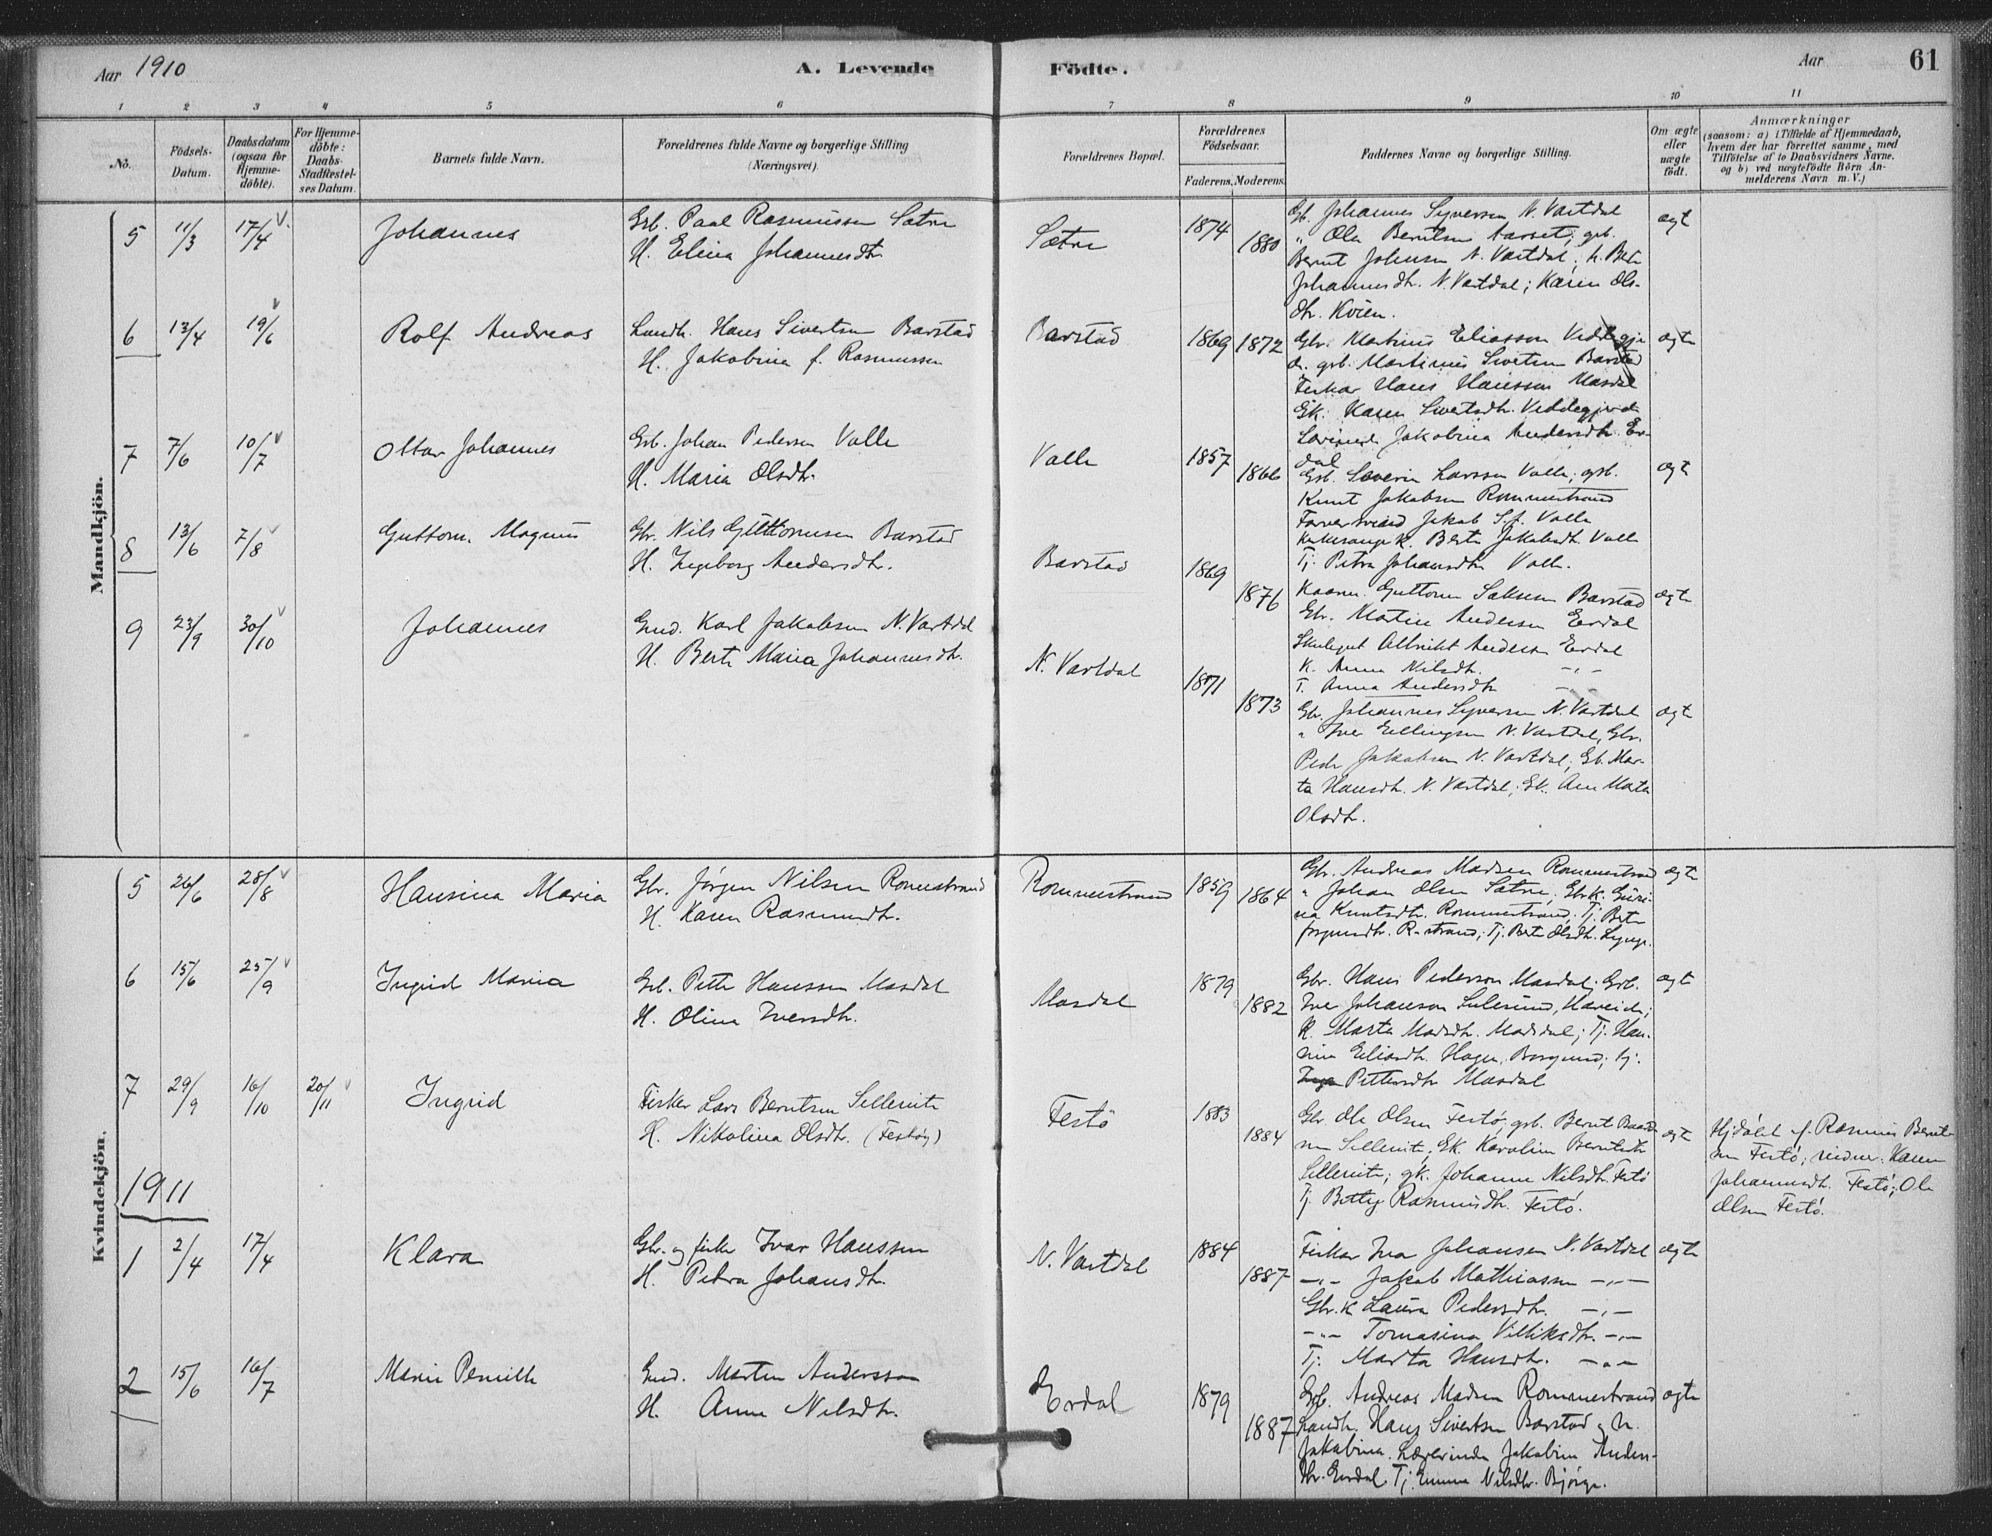 Aar 1910
A. Levende Födte.
Aar
61
1 2 3 4 5 6 7 8 9 10 11
No.
Födsels-Datum.
Daabsdatum (ogsaa for Hjemme-döbte).
For Hjemme-döbte: Daabs-Stadfæstel-ses Datum.
Barnets fulde Navn.
Forældrenes fulde Navne og borgerlige Stilling (Næringsvei).
Forældrenes Bopæl.
Forældrenes Födselsaar.
Faderens. Moderens.
Faddernes Navne og borgerlige Stilling.
Om ægte eller uægte födt.
Anmærkninger
(saasom: a) i Tilfælde af Hjemmedaab,
hvem der har forrettet samme, med
Tilföielse af to Daabsvidners Navne,
og b) ved uægtefödte Börn An-
melderens Navn m. V.)
Mandkjön.
5 11/3 17/4 Johannes
Grb. Paal Rasmussen Sætre
H. Elina Johannesdtr.
Sætre 1874 1880
Gb. Johannes Syversen N. Vartdal
" Ole Berntsen Aarset; grb.
Bernt Johnsen N. Vartdal; h. Berte
Johannesdtr. N. Vartdal; Karen Ols-
dtr. Kvien.
ægte
6 13/4 19/6 Rolf Andreas
Landh. Hans Sivertsen Barstad
H. Jakobina f. Rasmussen
Barstad 1869 1872
Gbr. Martinus Eliassen
grb. Martinus Sivertsen Barstad
Fisker Hans Hanssen Masdal
Gk. Karen Sivertsdtr. Viddegjerde
Jakobina Andersdtr. Er-
dal
ægte
7 7/6 10/7 Ottar Johannes
Grb. Johan Pedersen Valle
H. Maria Olsdtr.
Valle 1857 1866
Grb. Severin Larssen Valle; grb.
Knut Jakobsen Rommestrand
Jakob S.f. Valle
Berte Jakobsdtr. Valle
Tj. Petra Johansdtr. Valle.
ægte
8 13/6 7/8 Guttorm Magnus
Gbr. Nils Guttormsen Barstad
H. Ingeborg Andersdtr.
Barstad 1869 1876
Kaarm. Guttorm Saksen Barstad
Gbr. Martin Andersen Erdal
Albrikt Andersen Erdal
K. Anna Nilsdtr. -"-
T. Anna Andersdtr.
ægte
9 23/9 30/10 Johannes
Gmd. Karl Jakobsen N. Vartdal
H. Berte Maria Johannesdtr.
N. Vartdal 1871 1873
Gbr. Johannes Syversen N. Vartdal
" Iver Ellingsen N. Vartdal, Gbr.
Peder Jakobsen N. Vartdal; Gk. Mar-
ta Hansdtr. N. Vartdal; Gk. Ane Marta
Olsdtr.
ægte
Kvindekjön.
5 26/6 28/8 Hansina Maria
Gbr. Jörgen Nilsen Romestrand
H. Karen Rasmusdtr.
Rommestrand 1859 1864
Gbr. Andreas Madsen Rommestrand
" Johan Olsen Sætre; Gbrk. Guri-
na Knutsdtr. Rommestrand; Tj. Berte
Jörgensdtr. R-strand; Tj. Berte Olsdtr. Lyngn.
ægte
6 15/6 25/9 Ingrid Maria
Grb. Petter Hanssen Masdal
H. Olina Iversdtr.
Masdal 1879 1882
Gbr. Hans Pederson Masdal; Grb.
Iver Johanson Hareide;
K. Marta Madsdtr. Masdal; Tj. Han-
sine Eliasdtr. Hagen, Borgund; tj.
Pettersdtr. Masdal
ægte
7 29/9 16/10 20/11 Ingrid
Fisker Lars Berntsen Sellereite
H. Nikolina Olsdtr. (Festöy)
Festö 1883 1884
Gbr. Ole Olsen Festö; grb. Bernt Baard-
sen Sellereite; Gk. Karoline Berntsdtr.
Sellereite; gk. Johanne Nilsdtr. Festö
Tj. Bettey Rasmusdtr. Festö.
ægte
Hjdöbt af Rasmus Bernt-
sen Festö; vidner: Karen
Johannesdtr. Festö; Ole
Olsen Festö.
1911
1 2/4 17/4 Klara
Gbr. og fisker Ivar Hanssen
H. Petra Johansdtr.
N. Vartdal 1884 1887
Fisker Iver Johansen N. Vartdal
-"- Jakob Mathiassen -"-
Gbr. K Laura Pedersdtr. -"-
-"- Tomasina Villiksdtr. -"-
Tj. Marta Hansdtr. -"-
ægte
2 15/6 16/7 Marie Pernille
Gmd. Martin Andersson
H. Anna Nilsdtr.
Erdal 1879 1887
Grb. Andreas Madsen Rommestrand
Landh. Hans Sivertsen Barstad og h.
Jakobina. Lærerinde Jakobine Anders-
dtr. Erdal. Tj. Emma Nilsdtr. Bjørge.
ægte